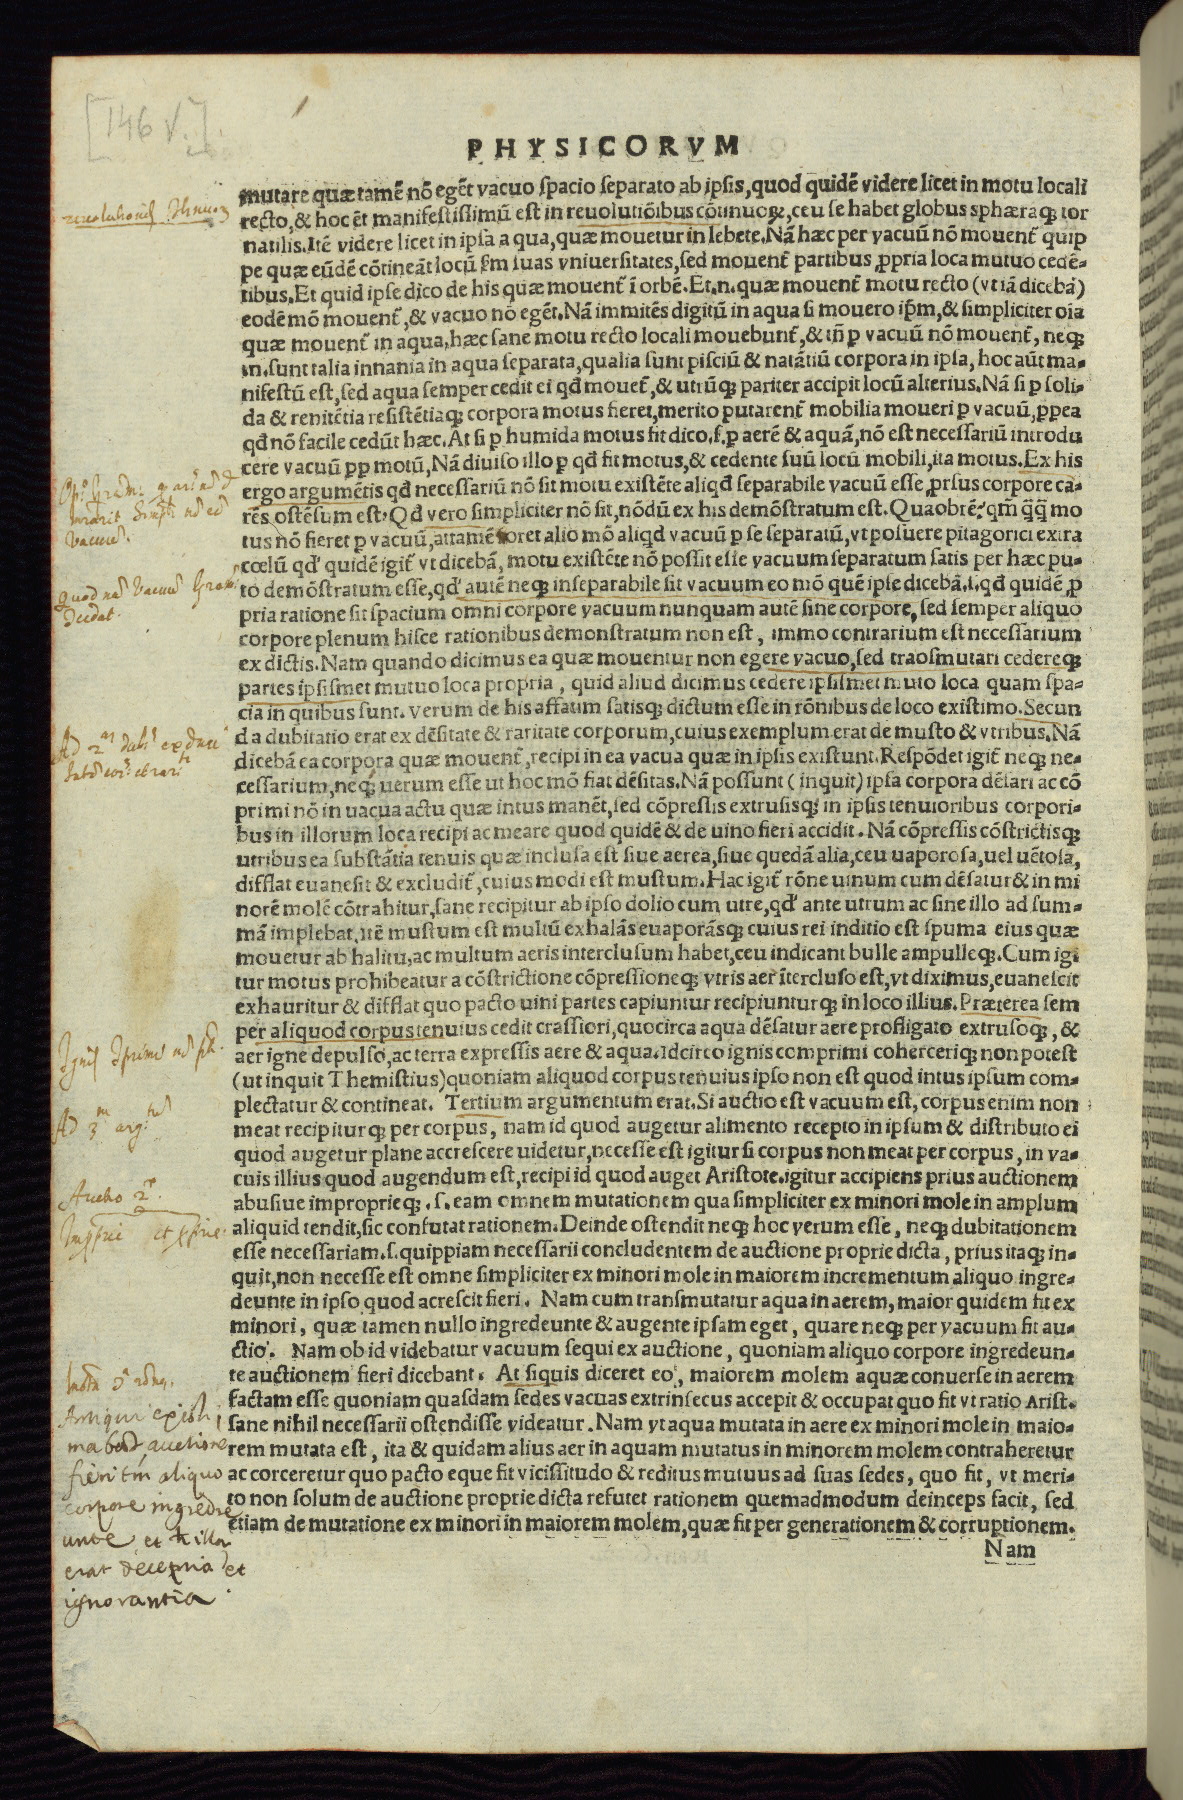 [146 v.]
PHYSICORVM
mutare quæ tamē nō egēt vacuo spacio separato ab ipsis, quod quidē videre licet in motu locali
recto, & hoc ēt manifestissimū est in reuolutiōibus cōtinuoꝝ, ceu se habet globus sphæraqꝫ tor
natilis. Itē videre licet in ipsa aqua, quæ mouetur in lebete. Nā hæc per vacuū nō mouent̃ quip
pe quæ eūdē cōtineāt locū ẜm suas vniuersitates, sed mouent̃ partibus ꝓpria loca mutuo cedē-
tibus. Et quid ipse dico de his quæ mouent̃ ī orbē. Et .n. quæ mouent̃ motu recto (vt iā dicebā)
eodē mō mouent̃, & vacuo nō egēt. Nā immitēs digitū in aqua si mouero ip̄m, & simpliciter oīa
quæ mouent̃ in aqua, hæc sane motu recto locali mouebunt̃, & tñ ꝑ vacuū nō mouent̃, neqꝫ
.n. sunt talia innania in aqua separata, qualia sunt pisciū & natātiū corpora in ipsa, hoc aūt ma-
nifestū est, sed aqua semper cedit ei qđ mouet̃, & utrūqꝫ pariter accipit locū alterius. Nā si ꝑ soli-
da & renitētia resistētiaqꝫ corpora motus fieret, merito putarent̃ mobilia moueri ꝑ vacuū, ꝓpea
qđ nō facile cedūt hæc. At si ꝑ humida motus fit dico .s. ꝑ aerē & aquā, nō est necessariū introdu
cere vacuū ꝓp motū, Nā diuiso illo ꝑ qđ fit motus, & cedente suū locū mobili, ita motus. Ex his
ergo argumētis qđ necessariū nō sit motu existēte aliqđ separabile vacuū esse, ꝓrsus corpore ca-
rēs ostēsum est. Qđ vero simpliciter nō sit, nōdū ex his demōstratum est. Quaobrē qm̄ q̄q̄ mo
tus nō fieret ꝑ vacuū, attamē foret alio mō aliqđ vacuū ꝑ se separatū, vt posuere pitagorici extra
cœlū qđ quidē igit̃ vt dicebā, motu existēte nō possit esse vacuum separatum satis per hæc pu-
to demōstratum esse, qđ autē neqꝫ inseparabile sit vacuum eo mō quē ipse dicebā .i. qđ quidē ꝓ
pria ratione sit spacium omni corpore vacuum nunquam autē sine corpore, sed semper aliquo
corpore plenum hisce rationibus demonstratum non est, immo contrarium est necessarium
ex dictis. Nam quando dicimus ea quæ mouentur non egere vacuo, sed traosmutari cedereqꝫ
partes ipsismet mutuo loca propria, quid aliud dicimus cedere ipsismet muto loca quam spa-
cia in quibus sunt. Verum de his affatim satisqꝫ dictum esse in rōnibus de loco existimo. Secun
da dubitatio erat ex dēsitate & raritate corporum, cuius exemplum erat de musto & vtribus. Nā
dicebā ea corpora quæ mouent̃, recipi in ea vacua quæ in ipsis existunt. Respōdet igit̃ neqꝫ ne-
cessarium, neqꝫ uerum esse ut hoc mō fiat dēsitas. Nā possunt (inquit) ipsa corpora dēsari ac cō
primi nō in uacua actu quæ intus manēt, sed cōpressis extrusisqꝫ in ipsis tenuioribus corpori-
bus in illorum loca recipi ac meare quod quidē & de uino fieri accidit. Nā cōpressis cōstrictisqꝫ
utribus ea substātia tenuis quæ inclusa est siue aerea, siue quedā alia, ceu uaporosa, uel uētosa,
difflat euanesit & excludit̃, cuius modi est mustum. Hac igit̃ rōne uinum cum dēsatur & in mi
norē molē cōtrahitur, sane recipitur ab ipso dolio cum utre, qđ ante utrum ac sine illo ad sum-
mā implebat, itē mustum est multū exhalās euaporāsqꝫ cuius rei inditio est spuma eius quæ
mouetur ab halitu, ac multum aeris interclusum habet, ceu indicant bulle ampulleqꝫ. Cum igi
tur motus prohibeatur a cōstrictione cōpressioneqꝫ vtris aer ītercluso est, vt diximus, euanescit
exhauritur & difflat quo pacto uini partes capiuntur recipiunturqꝫ in loco illius. Præterea sem
per aliquod corpus tenuius cedit crassiori, quocirca aqua dēsatur aere profligato extrusoqꝫ, &
aer igne depulso, ac terra expressis aere & aqua. Idcirco ignis comprimi coherceriqꝫ non potest
(ut inquit Themistius) quoniam aliquod corpus tenuius ipso non est quod intus ipsum com-
plectatur & contineat. Tertium argumentum erat. Si auctio est vacuum est, corpus enim non
meat recipiturqꝫ per corpus, nam id quod augetur alimento recepto in ipsum & distributo ei
quod augetur plane accrescere uidetur, necesse est igitur si corpus non meat per corpus, in va-
cuis illius quod augendum est, recipi id quod auget Aristote. igitur accipiens prius auctionem
abusiue improprieqꝫ .s. eam omnem mutationem qua simpliciter ex minori mole in amplum
aliquid tendit, sic confutat rationem. Deinde ostendit neqꝫ hoc verum esse, neqꝫ dubitationem
esse necessariam .s. quippiam necessarii concludentem de auctione proprie dicta, prius itaqꝫ in-
quit, non necesse est omne simpliciter ex minori mole in maiorem incrementum aliquo ingre-
deunte in ipso quod acrescit fieri. Nam cum transmutatur aqua in aerem, maior quidem fit ex
minori, quæ tamen nullo ingredeunte & augente ipsam eget, quare neqꝫ per vacuum fit au-
ctio. Nam ob id videbatur vacuum sequi ex auctione, quoniam aliquo corpore ingredeun-
te auctionem fieri dicebant. At siquis diceret eo, maiorem molem aquæ conuerse in aerem
factam esse quoniam quasdam sedes vacuas extrinsecus accepit & occupat quo fit vt ratio Arist.
sane nihil necessarii ostendisse videatur. Nam vt aqua mutata in aere ex minori mole in maio-
rem mutata est, ita & quidam alius aer in aquam mutatus in minorem molem contraheretur
ac corceretur quo pacto eque fit vicissitudo & reditus mutuus ad suas sedes, quo fit, vt meri-
to non solum de auctione proprie dicta refutet rationem quemadmodum deinceps facit, sed
etiam de mutatione ex minori in maiorem molem, quæ fit per generationem & corruptionem.
Nam
Ad 3m arg.
Auctio 2x.
Antiqui existi
mabāt auctionē
fieri tm̄ aliquo
corpore ingredie
unte et
erat deceptio et
ignorantia